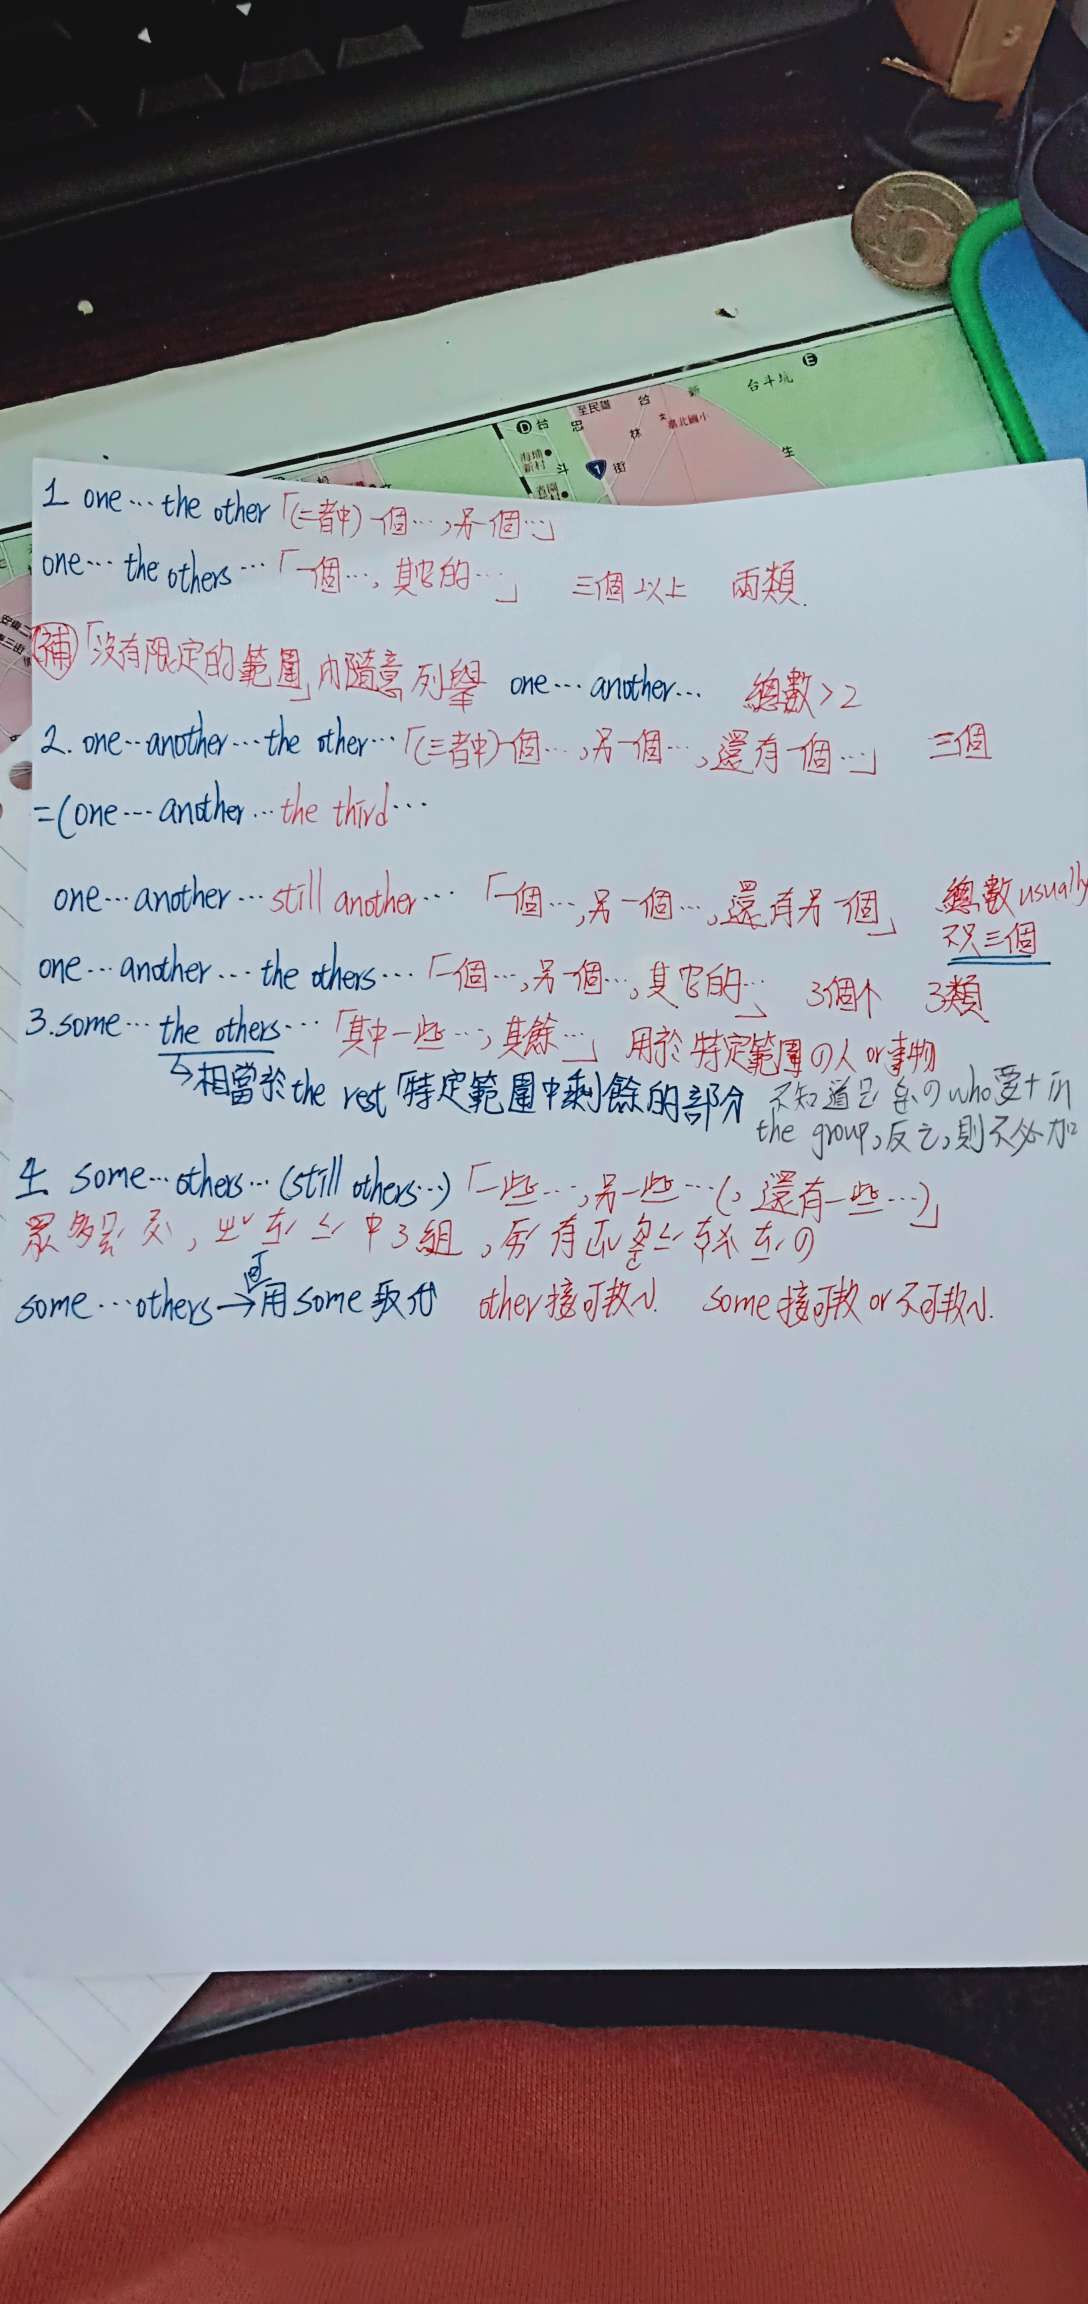 E
台斗坑
D
台
忠
林
街
至民雄
台
新
文
臺北國小
生
斗
1
海埔
新村
1 one…the other「(二者中)一個…,另一個…」
one…the others…「一個…,其它的…」 三個以上 兩類.
補「沒有限定的範圍」內隨意列舉 one…another… 總數>2
2. one…another…the other…「(三者中)一個…,另一個…,還有一個…」 三個
=(one…another…the third…
one…another…still another…「一個…,另一個…,還有另一個」 總數usually
不只三個
one…another…the others…「一個…,另一個…,其它的…」 3個个 3類
3.some…the others…「其中一些…;其餘…」 用於特定範圍の人or事物
↳相當於the rest「特定範圍中剩餘的部分 不知道是の who要+in
the group,反之,則不必加
4 some…others…(still others…)「一些…,另一些…(,還有一些…)」
眾多 中3組, 有 の
可
some…others→用some取代 other接可數N. some接可數or不可數N.